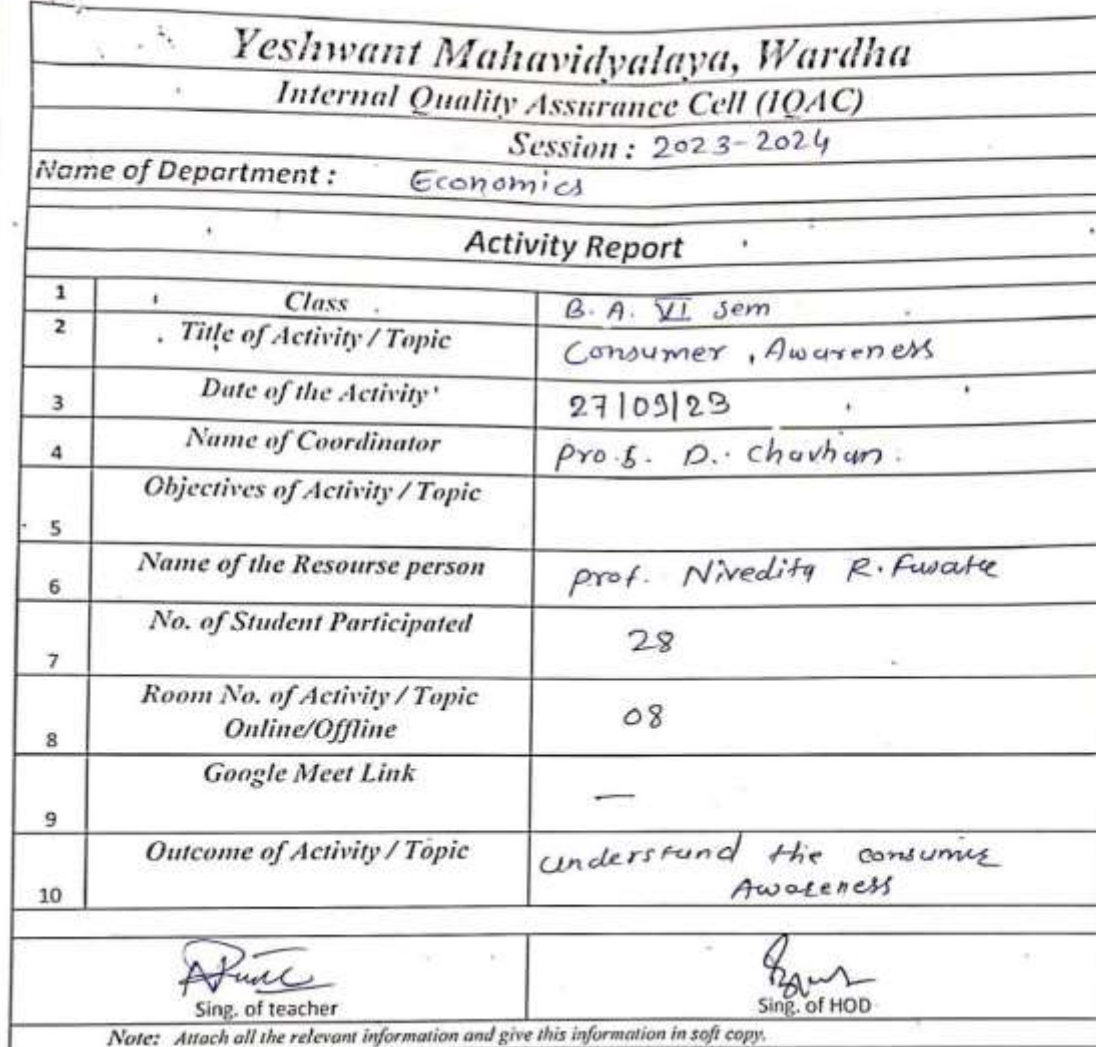 Yeshwant Mahavidyalaya, Wardha
Internal Quality Assurance Cell (IQAC)
Session : 2023-2024
Name of Department : Economics
Activity Report
1 Class B. A. VI Sem
2 Title of Activity / Topic Consumer, Awareness
3 Date of the Activity 27/09/23
4 Name of Coordinator Prof. D. Chavhan.
5 Objectives of Activity / Topic
6 Name of the Resourse person Prof. Nivedita R.
7 No. of Student Participated 28
8 Room No. of Activity / Topic 08
Online/Offline
9 Google Meet Link —
10 Outcome of Activity / Topic understand the consumer
Awareness
Sing. of teacher Sing. of HOD
Note: Attach all the relevant information and give this information in soft copy.